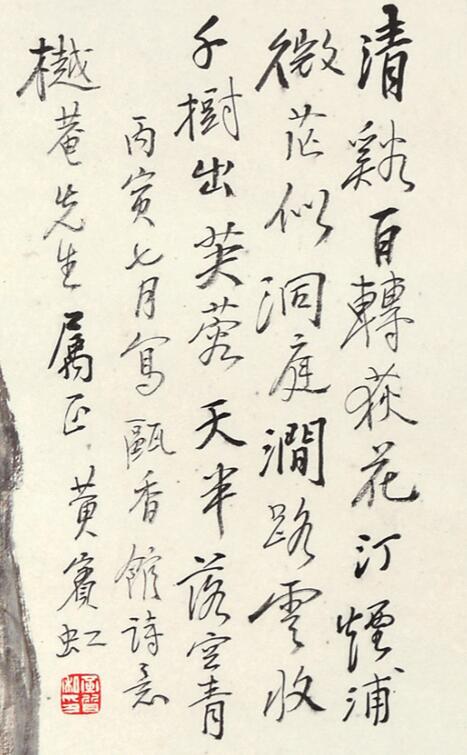 清谿百轉荻花汀煙浦
微茫似洞庭澗路雲收
千樹出芙蓉天半落空青
丙寅七月寫甌香館詩意
樾菴先生屬正 黃賓虹